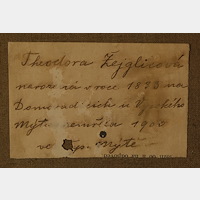 Theodora Zejglicová
narozená v roce 1833 na
Domoradicích u Vysokého
Mýta zemřela 1900
ve Vys. Mýtě